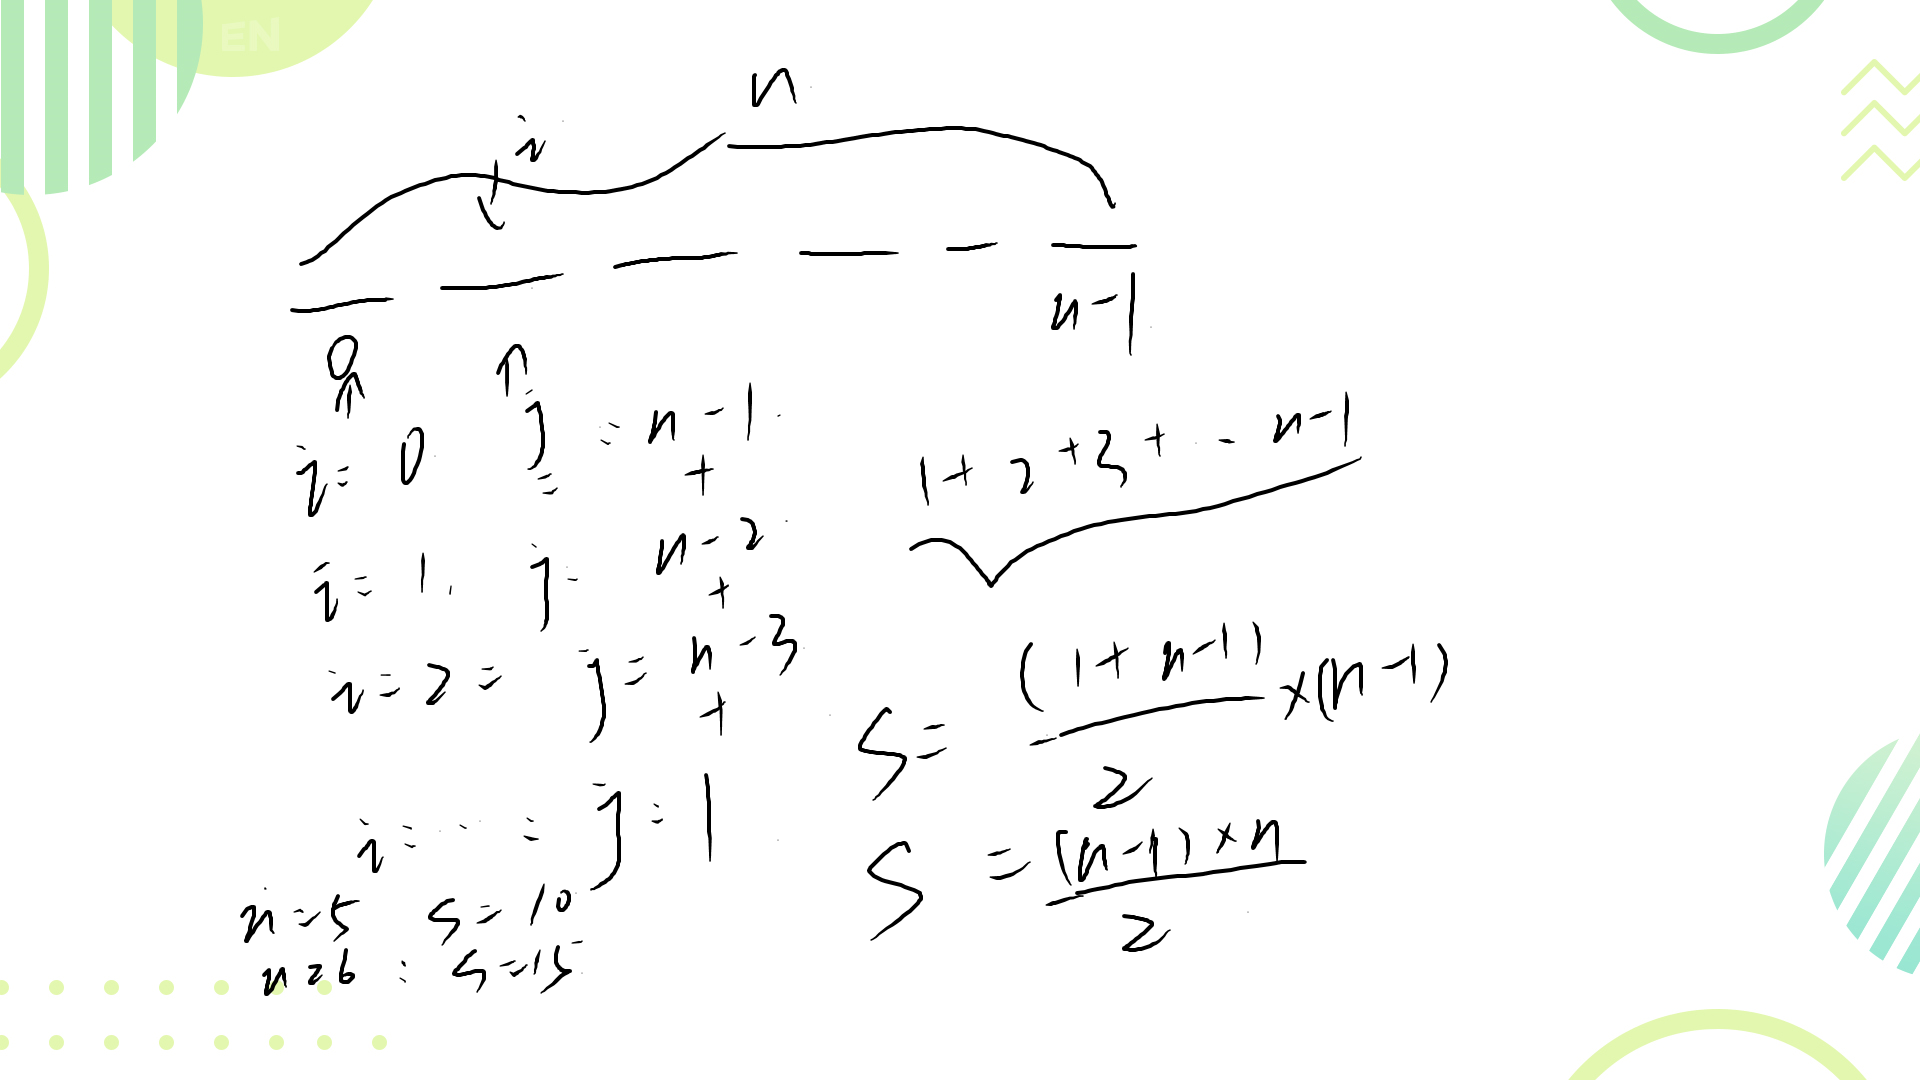 EN
n
i
n-1
0
i=0 j = n-1
=
+
i=1. j= n-2
+
i=2= j= n-3
+
i= ... = j=1
n=5 s=10
n=6 : s=15
1+2+3+...n-1
S= (1+n-1)/2 ×(n-1)
S = (n-1)×n/2